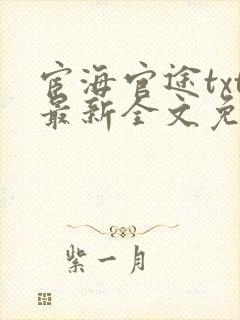 宦海官途txt
最新全文免
紫一月